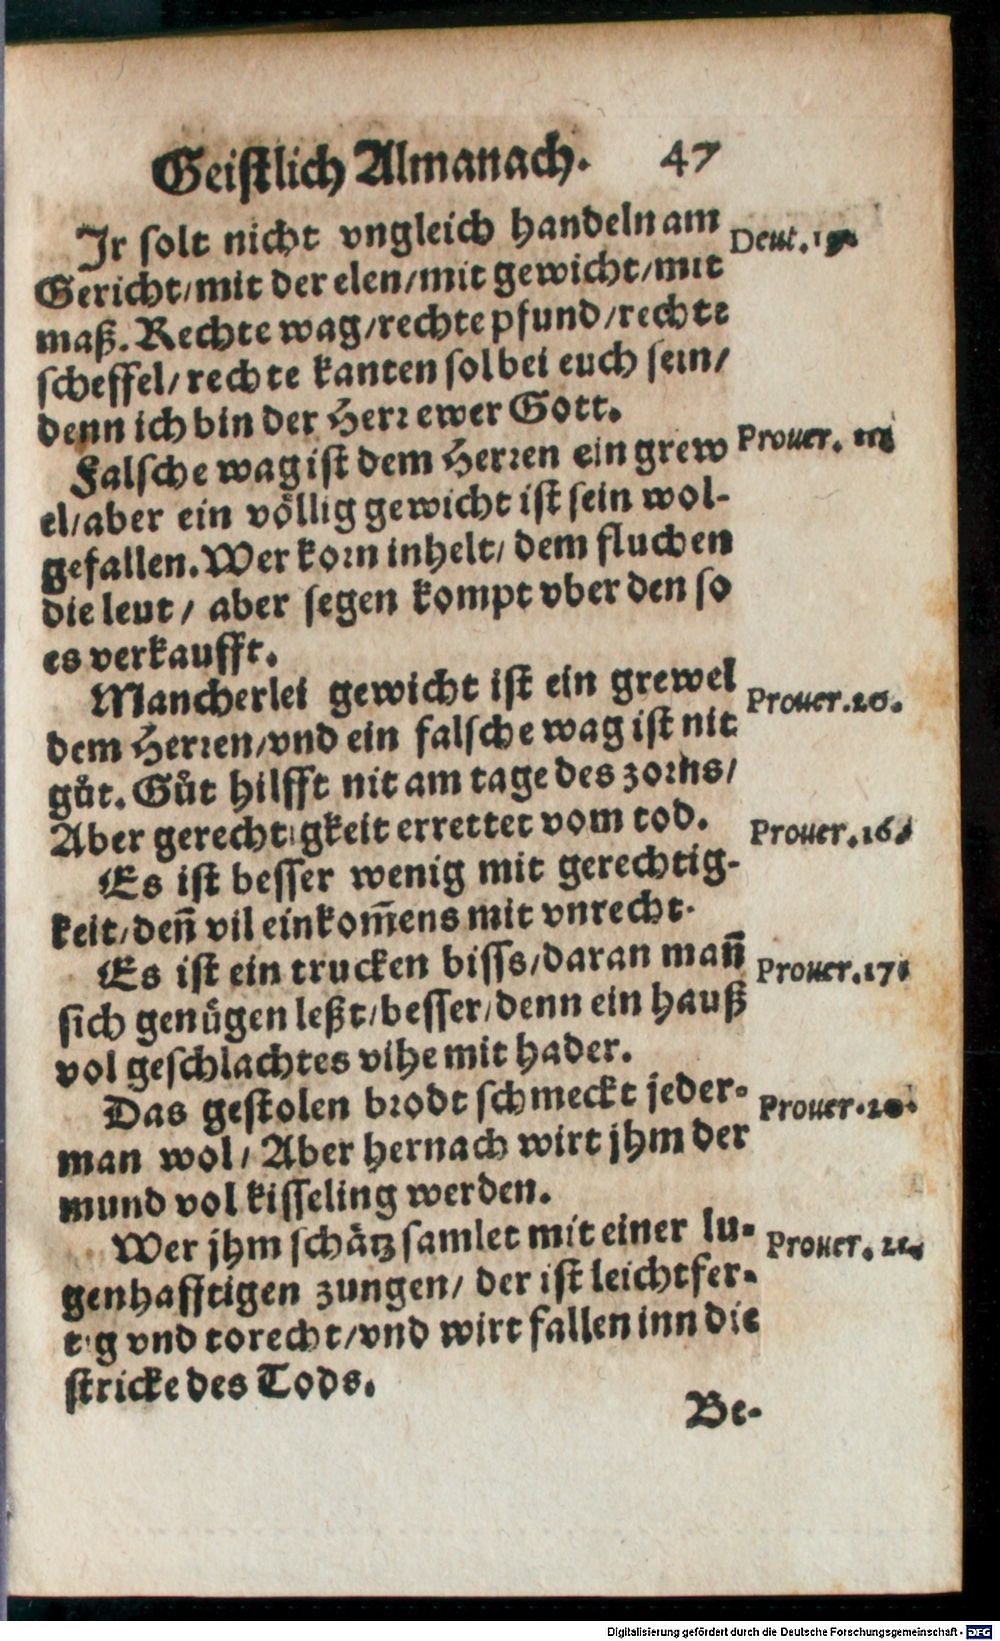 Geistlich Almanach. 47
Ir solt nicht vngleich handeln am
Deut. 19.
Gericht/mit der elen/mit gewicht/mit
maß. Rechte wag/rechte pfund/rechte
scheffel/rechte kanten sol bei euch sein/
denn ich bin der Herr ewer Gott.
Falsche wag ist dem Herren ein grew
Prouer. 11.
el/aber ein völlig gewicht ist sein wol-
gefallen. Wer korn inhelt/dem fluchen
die leut/ aber segen kompt vber den so
es verkaufft.
Mancherlei gewicht ist ein grewel
Prouer. 20.
dem Herren/vnd ein falsche wag ist nit
gůt. Gůt hilfft nit am tage des zorns/
Aber gerechtigkeit errettet vom tod.
Prouer. 16.
Es ist besser wenig mit gerechtig-
keit/deñ vil einkom̃ens mit vnrecht.
Es ist ein trucken bisss/daran mañ
Prouer. 17.
sich genügen leßt/besser/denn ein hauß
vol geschlachtes vihe mit hader.
Das gestolen brodt schmeckt jeder-
Prouer. 20.
man wol/ Aber hernach wirt jhm der
mund vol kisseling werden.
Wer jhm schätz samlet mit einer lu-
Prouer. 21.
genhafftigen zungen/ der ist leichtfer-
tig vnd torecht/vnd wirt fallen inn die
stricke des Tods.
Be-
Digitalisierung gefördert durch die Deutsche Forschungsgemeinschaft - DFG